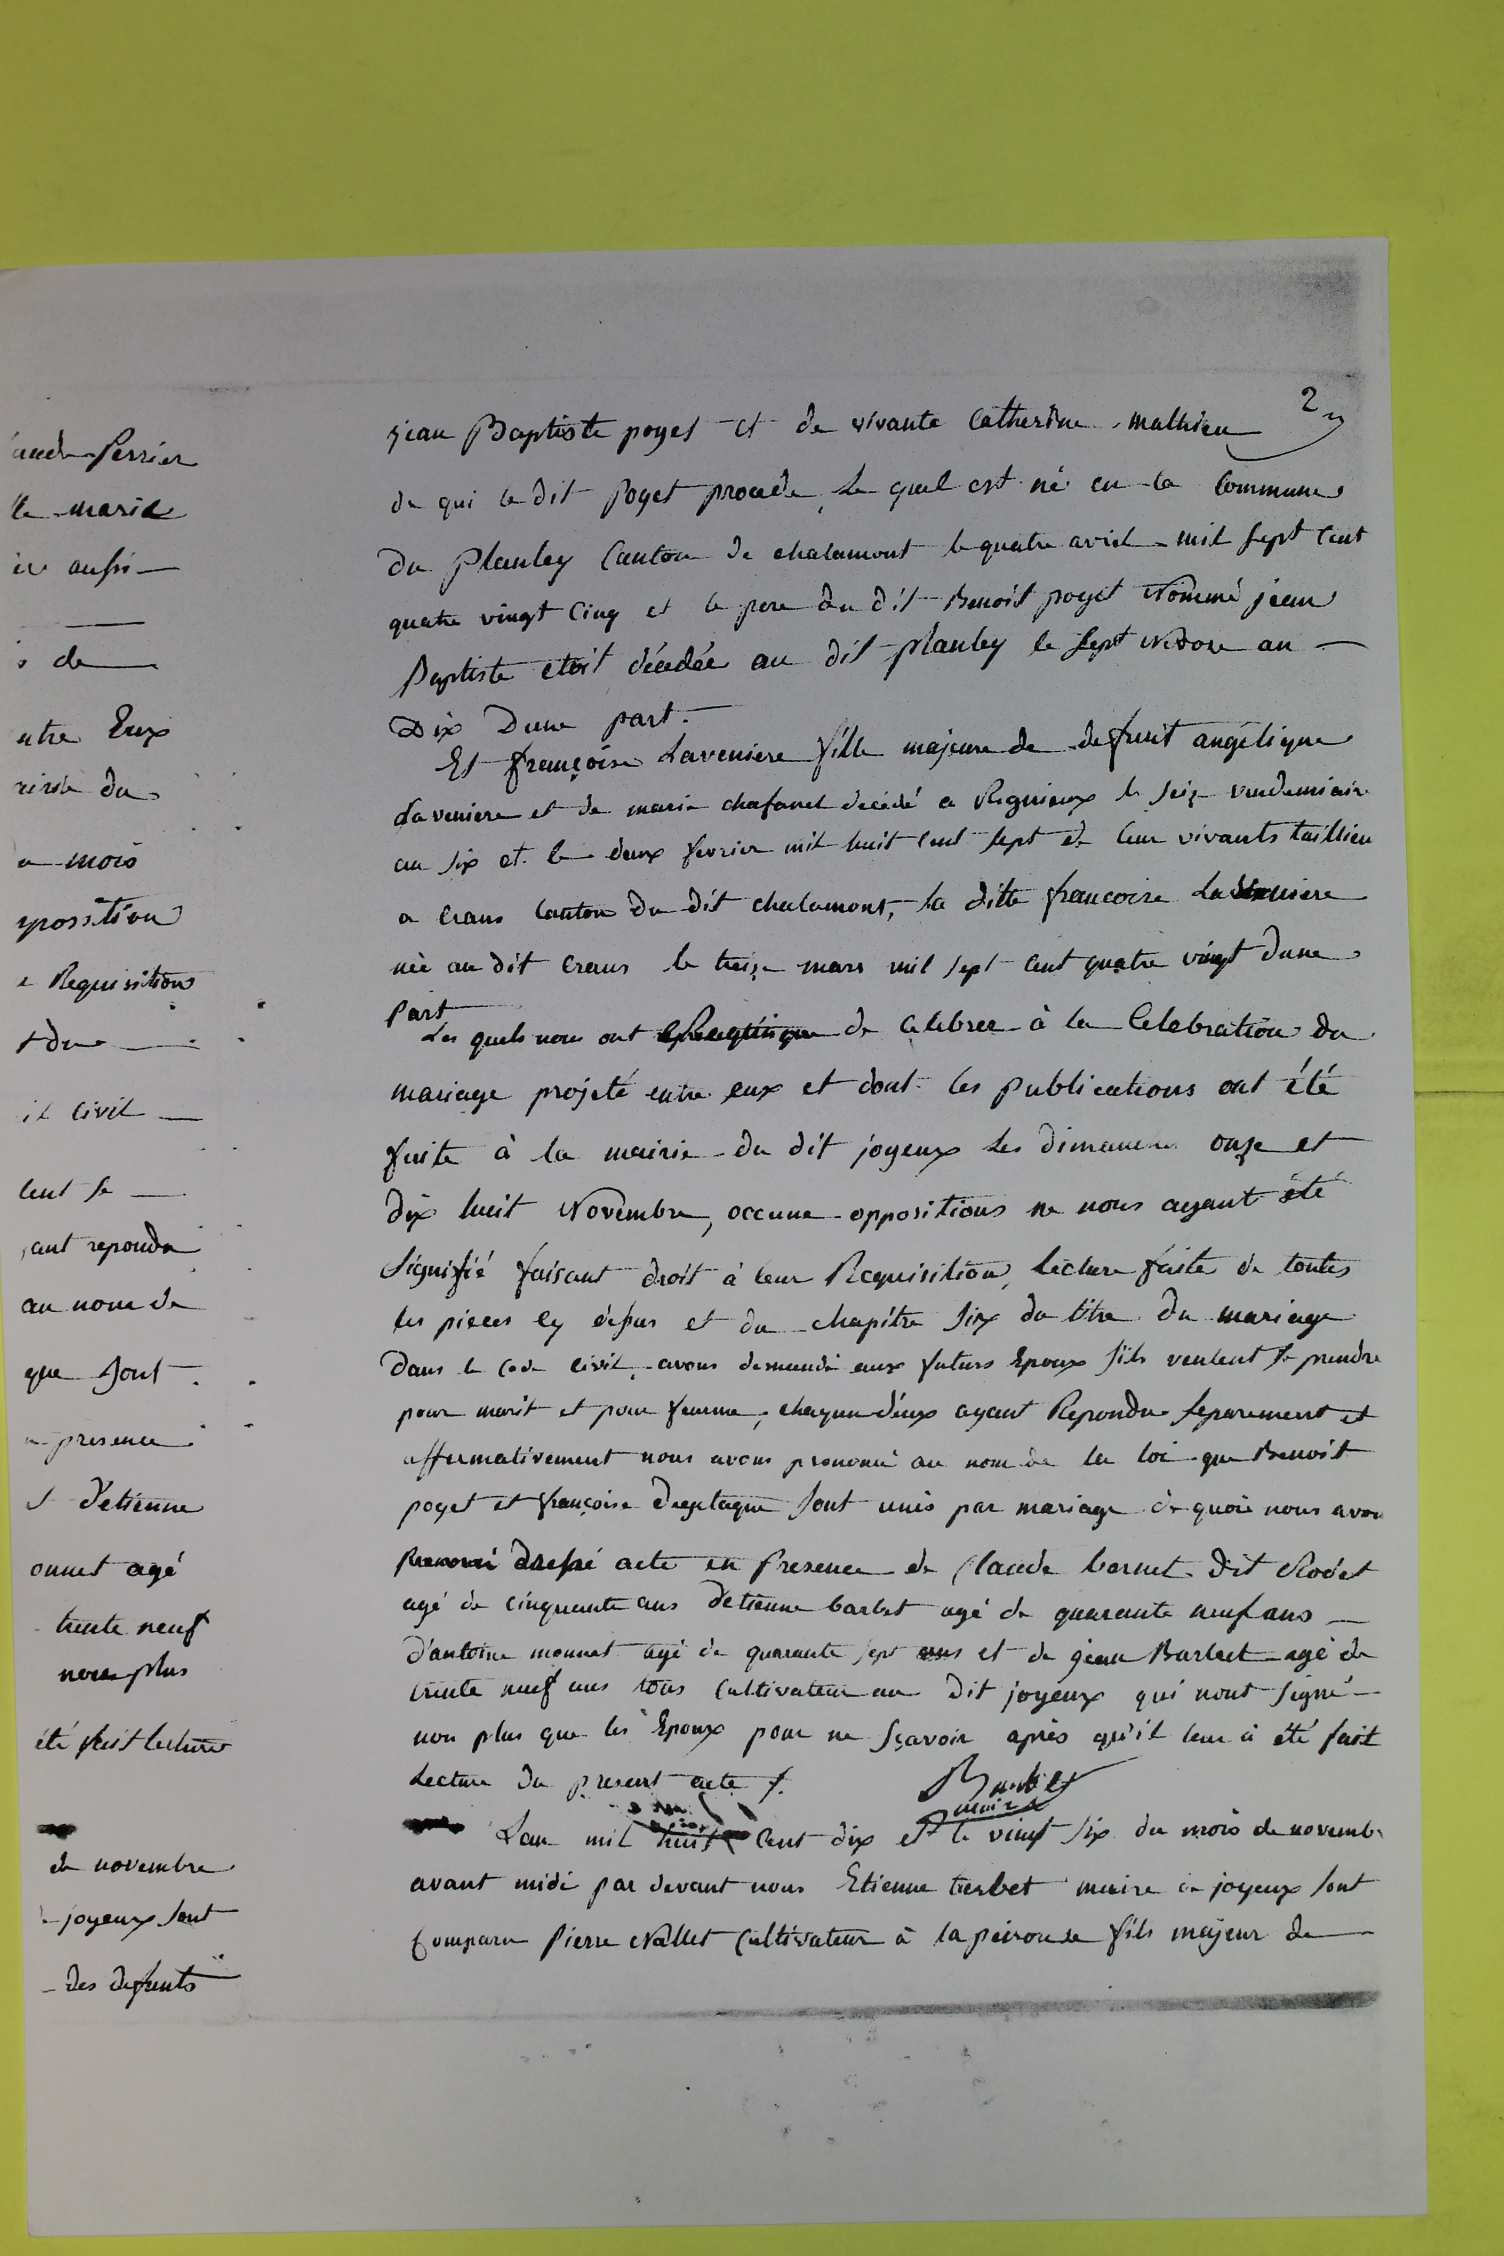 2
jean Baptiste poyet et de vivante Catherine mathieu
de qui le dit Poyet procede, Le quel est né en la Commune
du Plantey Canton de chalamont le quatre avril mil sept cent
quatre vingt Cinq et le pere du dit Benoit poyet Nommé jean
Baptiste etoit décedée au dit plantey le sept Nivose an
Dix Dune part.
Et françoise Laveniere fille majeure de defunt angélique
Laveniere et de marie chafanel decédé a Rignieux le seize vendemiaire
an six et le deux fevrier mil huit cent sept de leur vivants
a Crans Canton du dit chalamont, la ditte francoise Laveniere
née au dit Crans le treize mars mil sept cent quatre vingt dune
Part
Les quels nous ont de Celebree à la Celebration du
mariage projeté entre eux et dont les Publications ont été
faite à la mairie du dit joyeux Les dimanches onze et
dix huit Novembre, occune oppositions ne nous ayant été
Signifié faisant droit à leur Requisition, Lecture faite de toutes
les pieces cy dessus et du chapitre six du titre du mariage
Dans le Code Civil, avons demandé aux futurs Epoux s'ils veulent se prendre
pour marit et pour femme, chaqun d'eux ayant Repondu separement et
affirmativement nous avons prononcé au nom de la loi que Benoit
poyet et françoise sont unis par mariage de quoi nous avons
dressé acte en presence de Claude bornet dit Rodet
agé de cinquante ans detienne barbet agé de quarante neuf ans
d'antoine monnet agé de quarante sept ans et de jean Barbet agé de
trente neuf ans tous Cultivateur au dit joyeux qui nont signé
non plus que les Epoux pour ne sçavoir après qu'il leur à été fait
Lecture du present acte
Barbet
maire
Lan mil huit Cent dix et le vingt six du mois de novembre
avant midi par devant nous Etienne barbet maire de joyeux sont
Comparu Pierre Nallet Cultivateur à la peirouse fils majeur de
Perrier
le marie
aussi
de
ntre Eux
du
mois
pposition
e Requisition
t du
it Civil
lent se
ant repondu
au nom de
que sont
presence
d'etienne
onnet agé
trente neuf
non plus
été fait lecture
de novembre
joyeux sont
des defunts